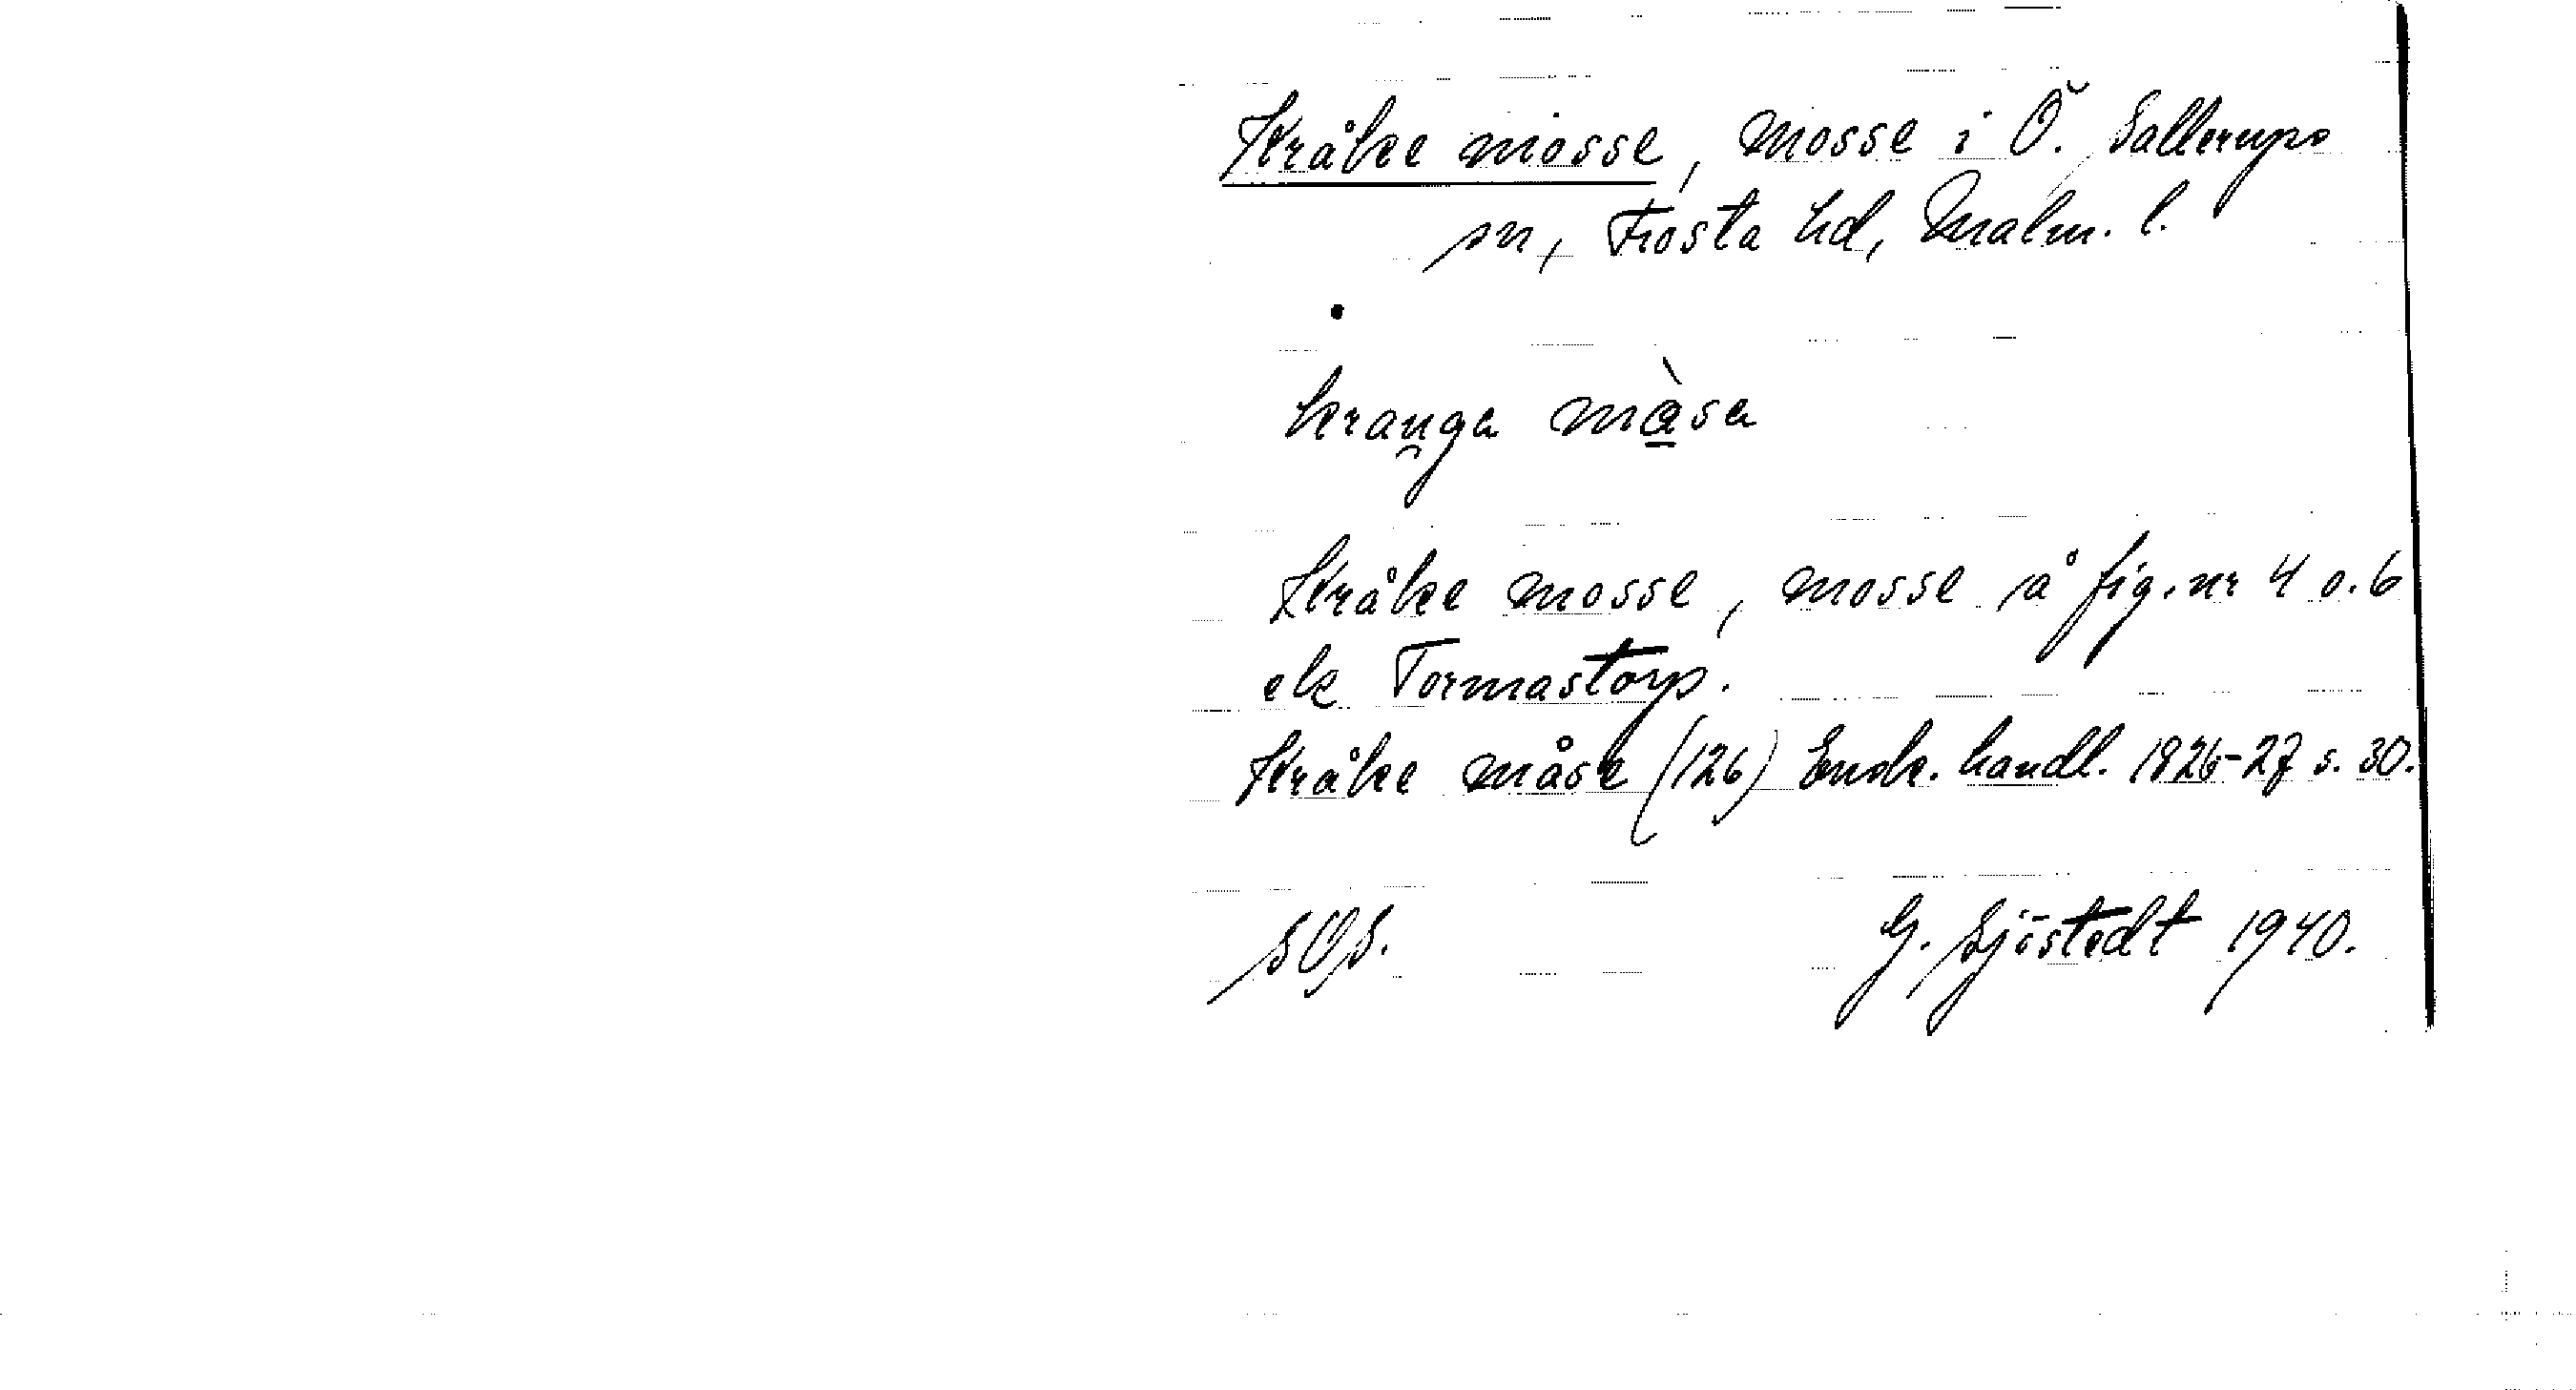 Kråke mosse, mosse i Ö. Sallerups
sn, Frosta hd, Malm. l.
krau̯ga màsa
Kråke mosse, mosse å fig. nr 4 o. 6
ek Tormastorp.
Kråke måse (126) Ensk. handl. 1826-27 s. 30.
SOS. G. Sjöstedt 1940.